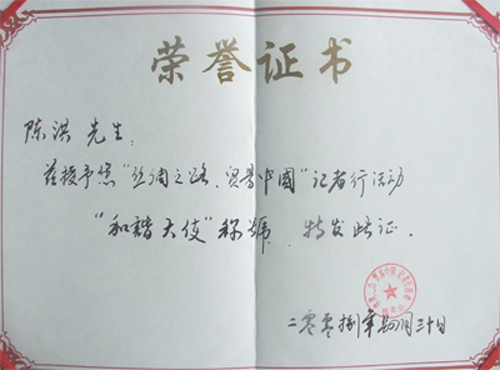 荣誉证书
陈洪 先生：
兹授予您“丝绸之路．贸易中國”记者行活动
“和谐大使”称號．特发此证．
二零零捌年四月三十日